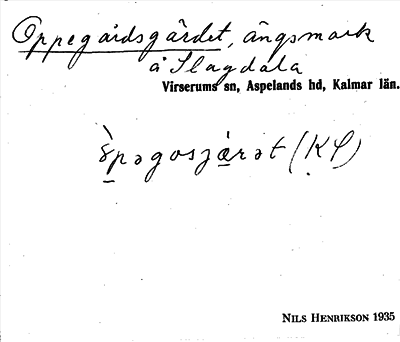 Oppegårdsgärdet, ängsmark
å Slagdala
Virserums sn, Aspelands hd, Kalmar län.
(K
NILS HENRIKSON 1935